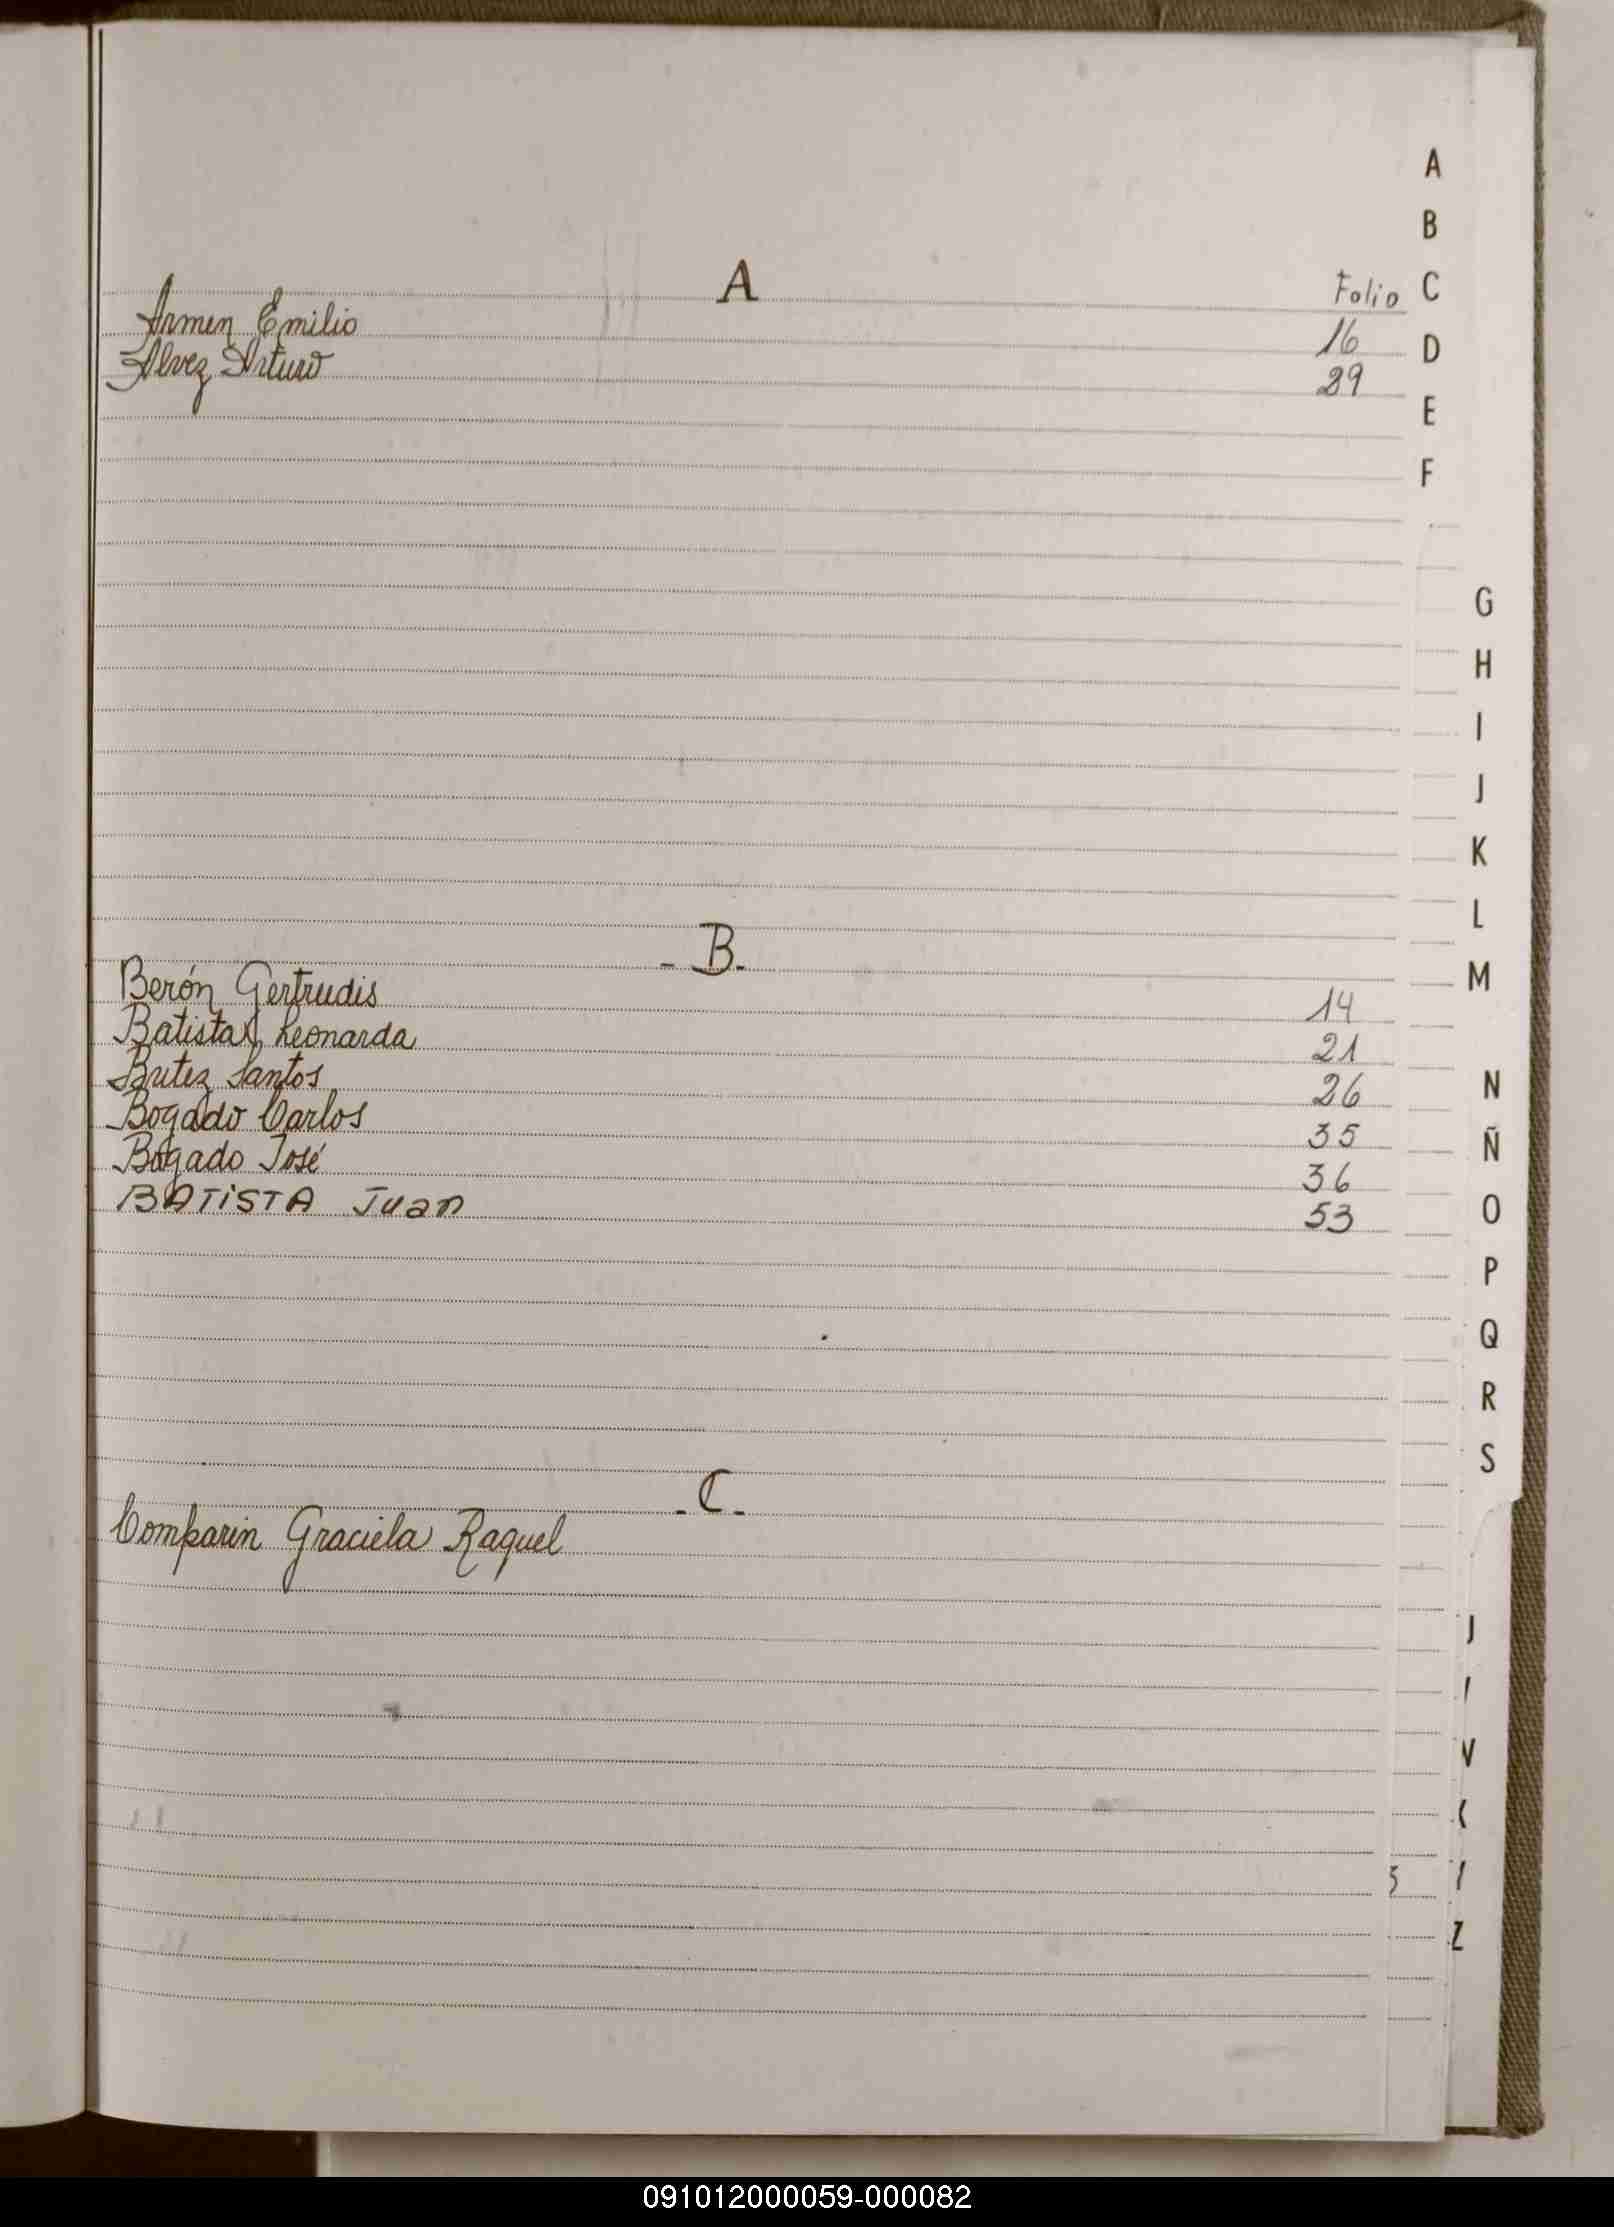 A
Folio
Armen Emilio 16
Alvez Arturo 29
- B -
Berón Gertrudis 14
Batista Leonarda 21
Britez Santos 26
Bogado Carlos 35
Bogado José 36
BATISTA Juan 53
- C -
Comparin Graciela Raquel
A
B
C
D
E
F
G
H
I
J
K
L
M
N
Ñ
O
P
Q
R
S
V
Z
091012000059-000082